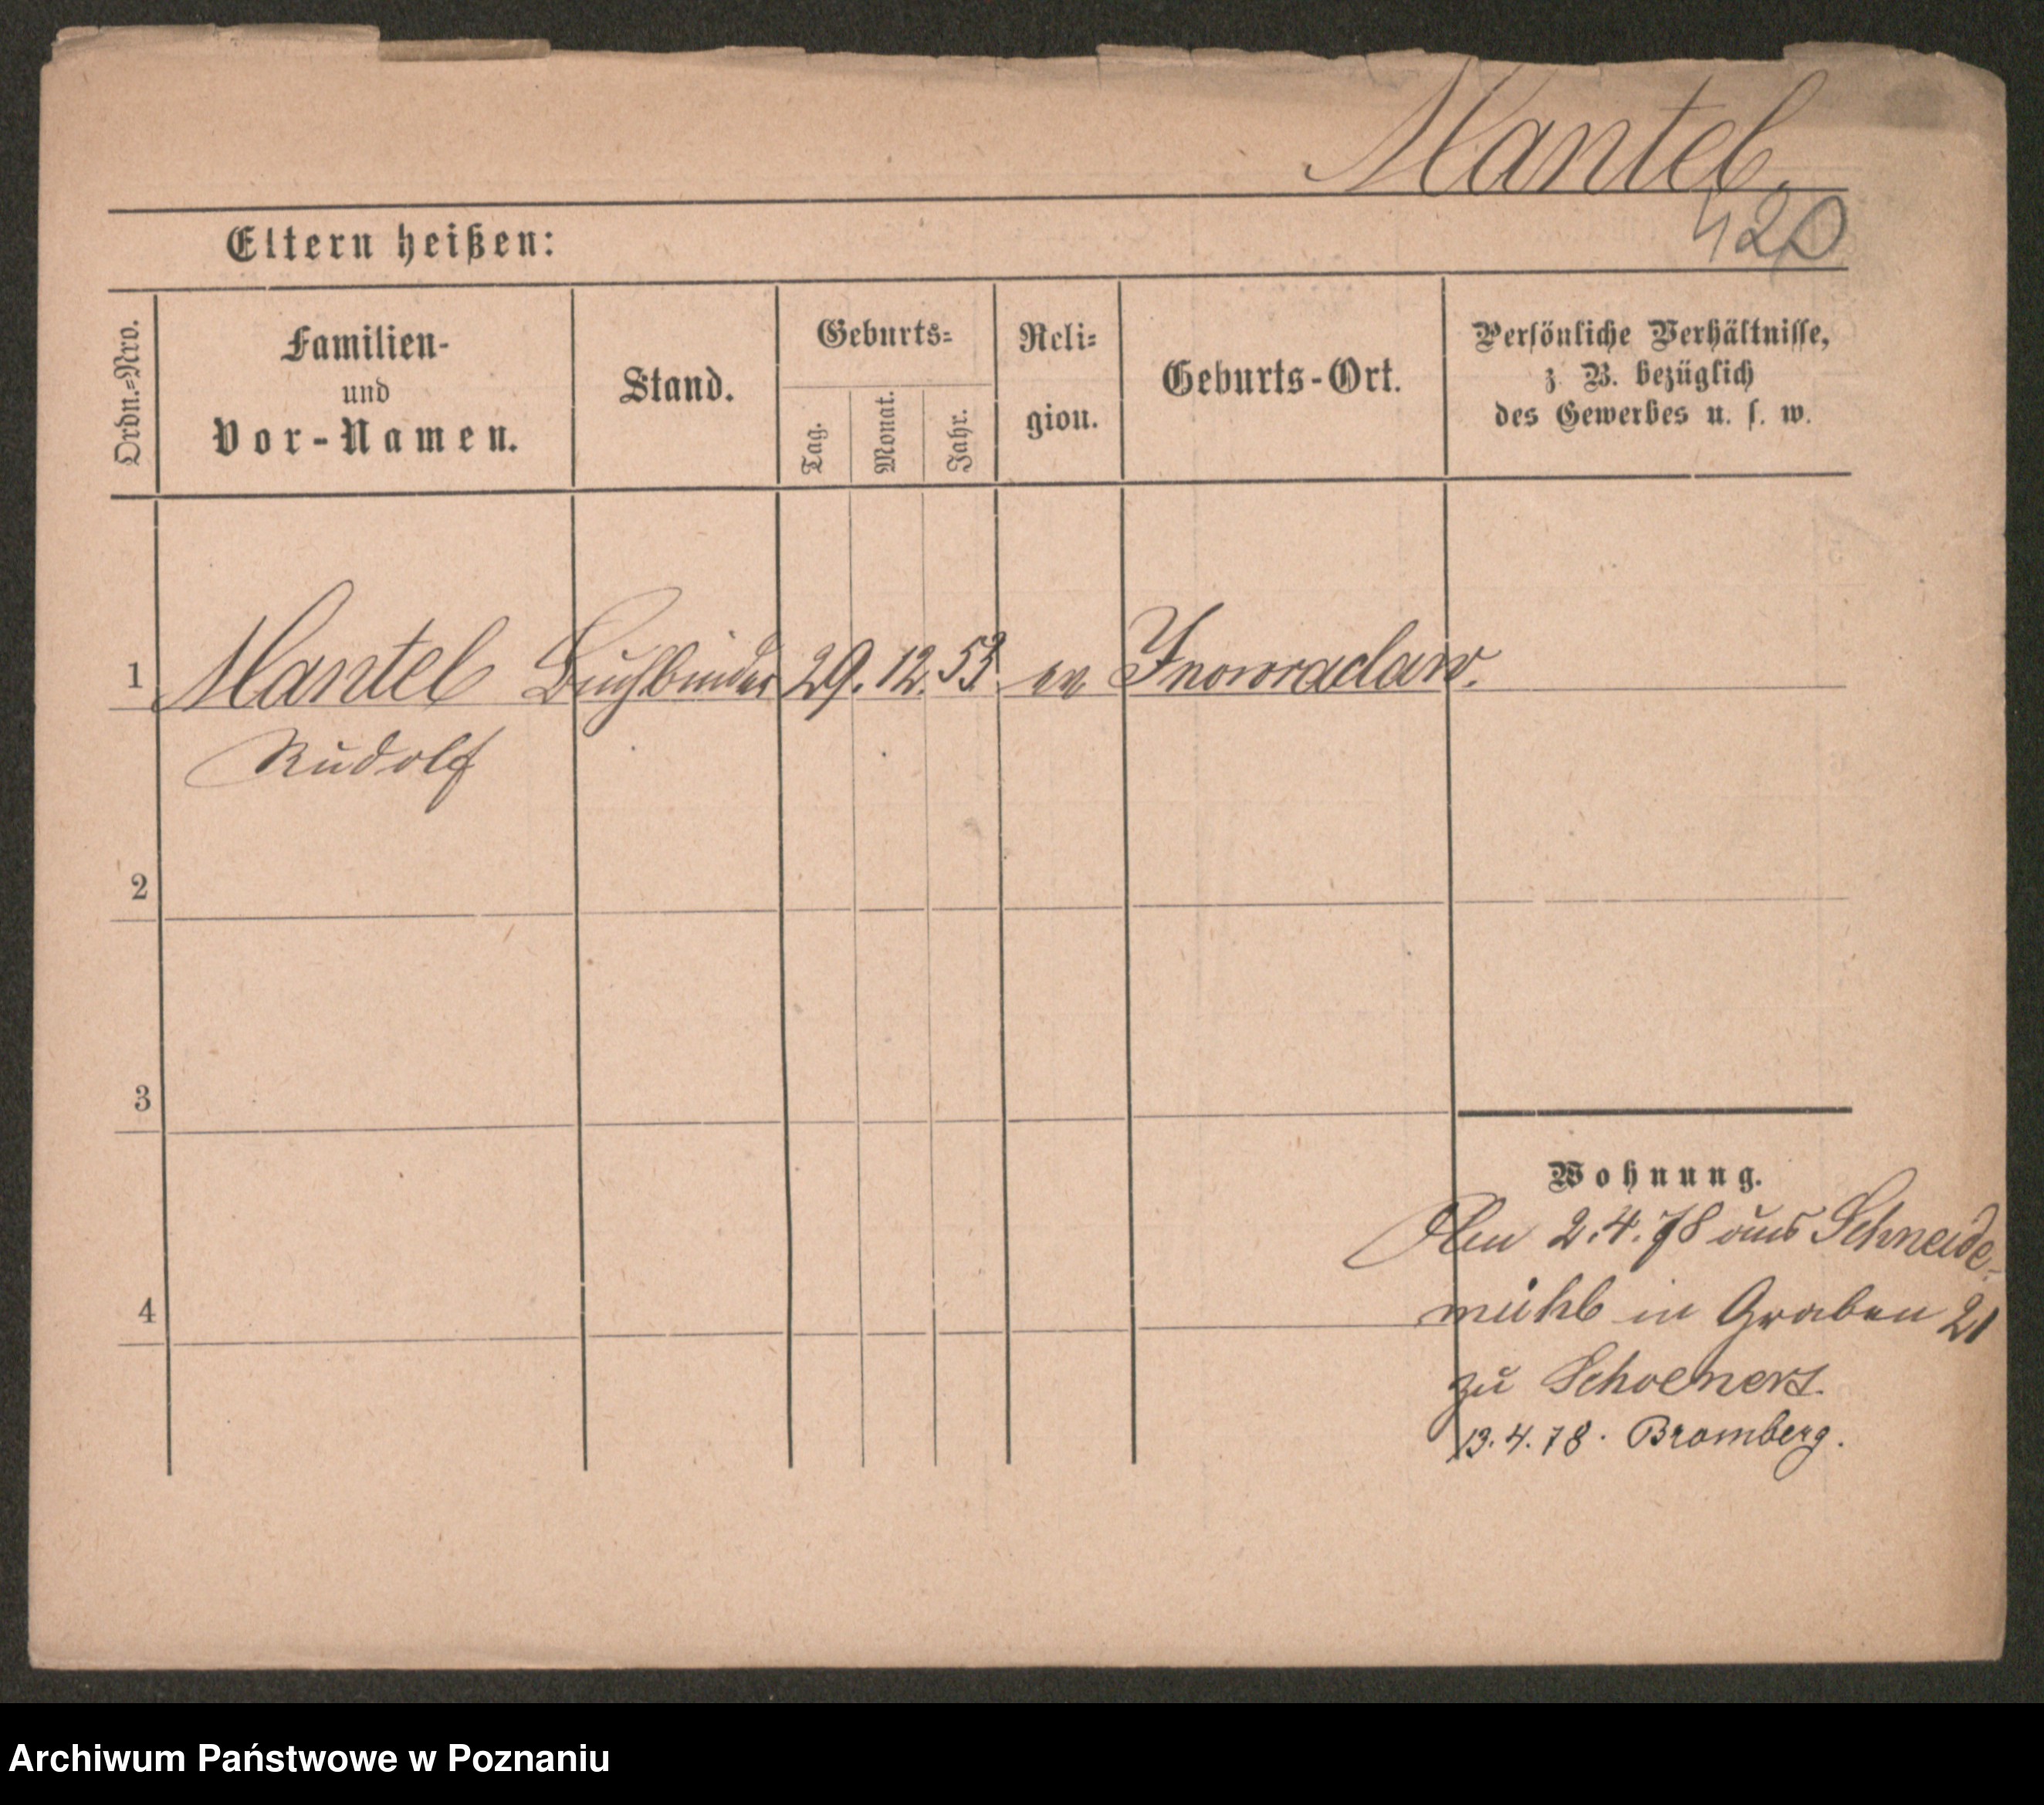 Mantel.
420
Eltern heißen:
Ordn.=Nro.
Familien-
und
Vor-Namen.
Stand.
Geburts=
Tag.
Monat.
Jahr.
Reli=
gion.
Geburts-Ort.
Persönliche Verhältnisse,
z. B. bezüglich
des Gewerbes u. s. w.
1 Mantel Buchbinder 29. 12. 53. ev Inowraclaw.
Rudolf
2
3
4
Wohnung.
2.4.78 aus Schneide-
mühl in Graben 21
zu Schoenert.
13.4.78. Bromberg.
Archiwum Państwowe w Poznaniu